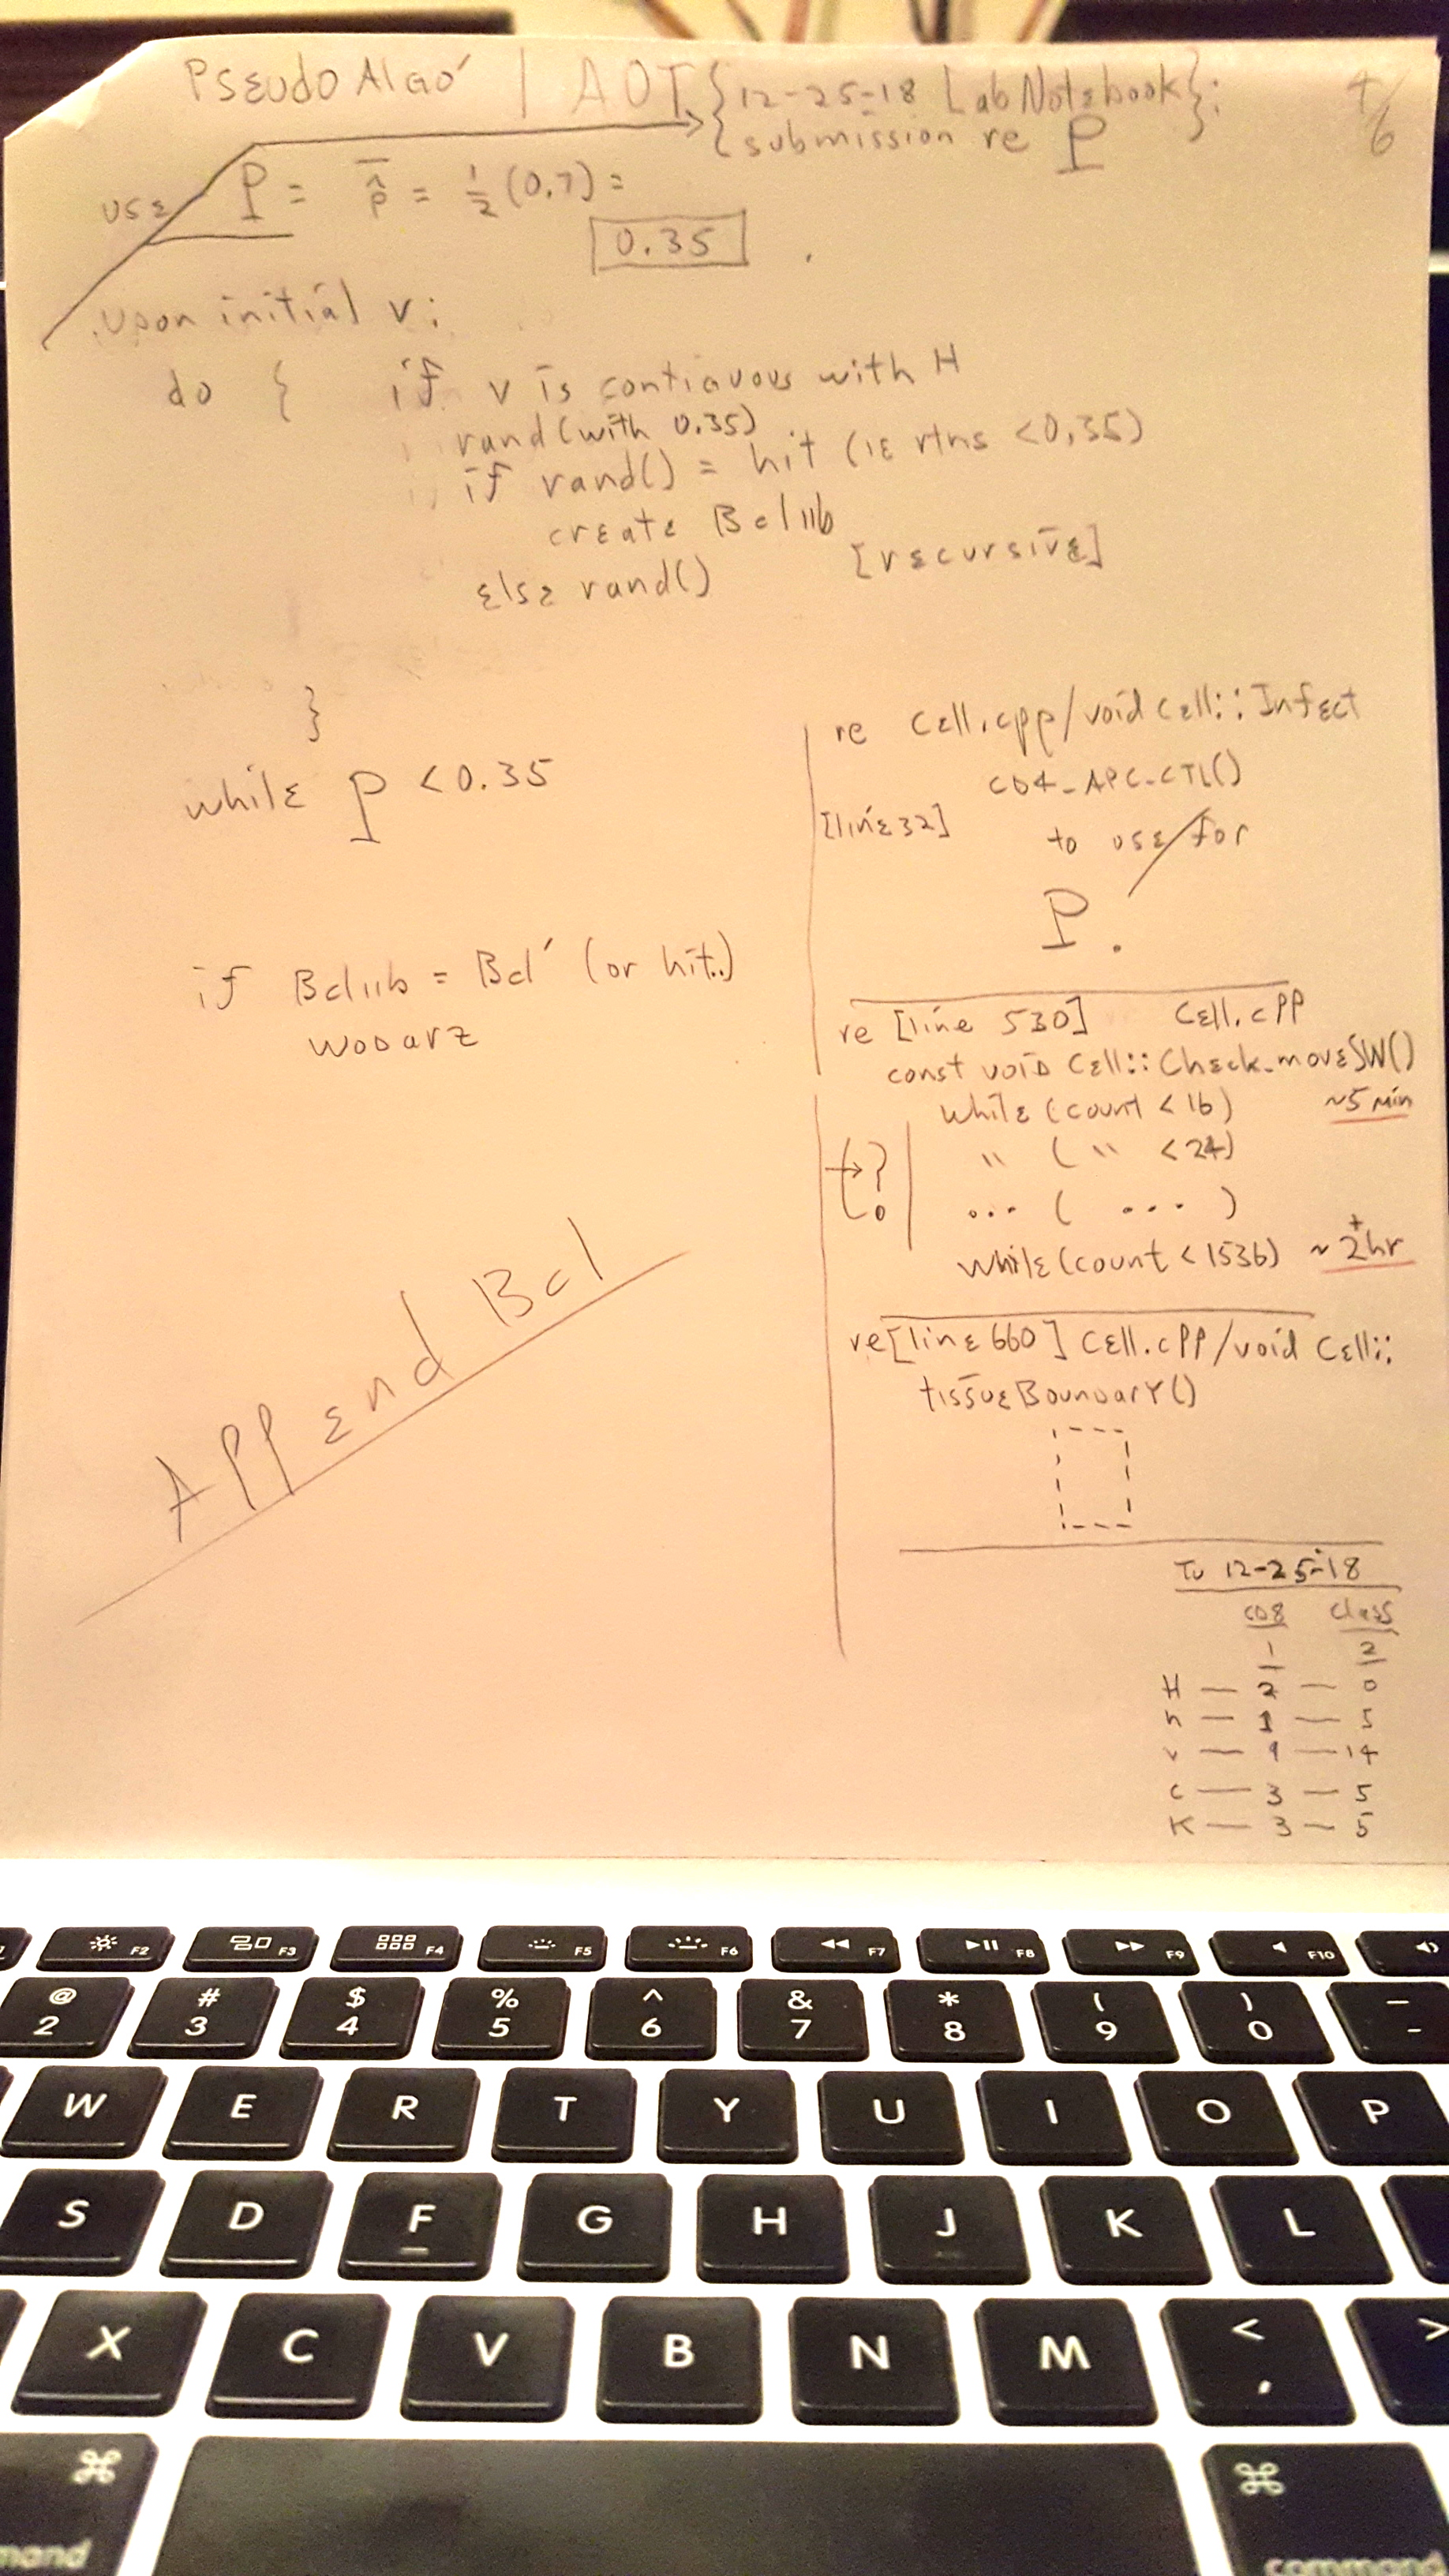 Pseudo Algo' | AOT {12-25-18 Lab Notebook}:
{submission re P
4/6
use P = p̂ = 1/2 (0.7) =
0.35
upon initial v:
do { if v is contiguous with H
rand(with 0.35)
if rand() = hit (ie rtns <0.35)
create Bcl11b
else rand() [recursive]
}
while P <0.35
if Bcl11b = Bcl' (or hit..)
wodarz
Append Bcl
re Cell.cpp/void Cell::Infect
CD4_APC_CTL()
[line 32] to use/for
P.
re [line 530] Cell.cpp
const void Cell::Check_moveSW()
while (count < 16) ~5 min
→ ? " ( " <24)
... ( ... )
while (count < 1536) ~ 2+ hr
re [line 660] Cell.cpp/void Cell::
tissueBoundary()
Tu 12-25-18
CD8 Class
1 2
H — 2 — 0
h — 1 — 5
v — 9 — 14
c — 3 — 5
K — 3 — 5
F2 F3 F4 F5 F6 F7 F8 F9 F10
@ # $ % ^ & * ( ) —
2 3 4 5 6 7 8 9 0 -
W E R T Y U I O P
S D F G H J K L
X C V B N M < >
,
⌘ ⌘
command command